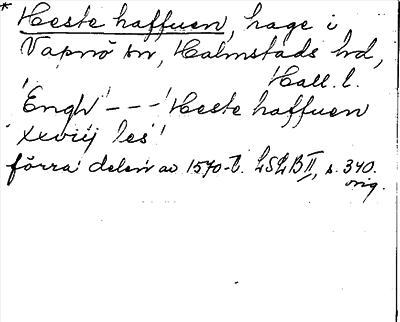 * Heste haffuen, hage i
Vapnö sn, Halmstads hd,
Hall. l.
'Engh' - - - 'Heste haffuen
xxviij les'
förra delen av 1570-t. LSLB II, s. 340.
orig.